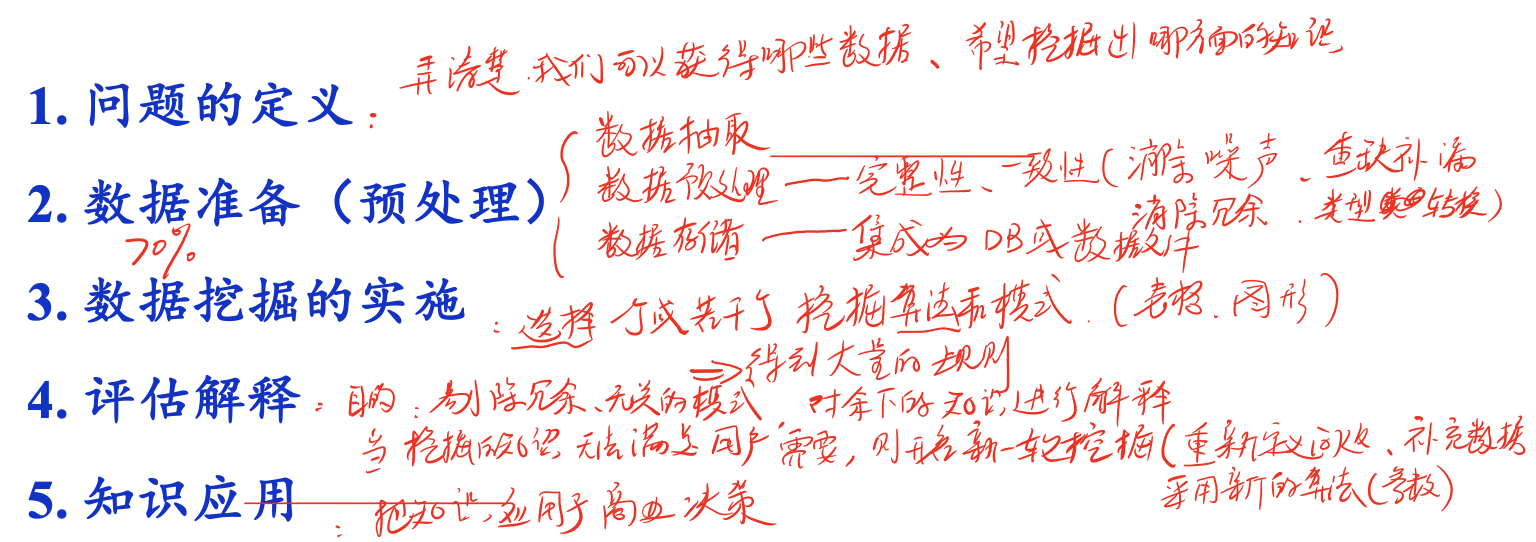 弄清楚我们可以获得哪些数据、希望挖掘出哪方面的知识
1. 问题的定义：
数据抽取
2. 数据准备（预处理）数据预处理——完整性、一致性(消除噪声、重缺补漏
70%
消除冗余、类型转换)
数据存储——集成为DB或数据文件
3. 数据挖掘的实施：选择个或若干个挖掘算法和模式.(表格.图形)
=>得到大量的规则
4. 评估解释：目的：剔除冗余、无关的模式，对余下的知识进行解释
当挖掘的知识无法满足用户需要，则开启新一轮挖掘(重新定义问题、补充数据
采用新的算法(参数)
5. 知识应用：把知识应用于商业决策